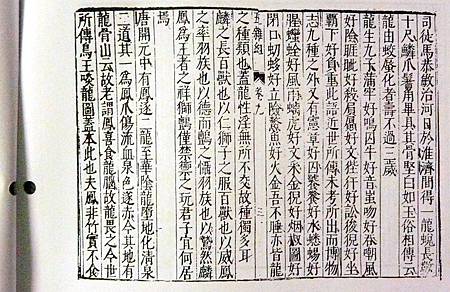 司徒馬恭敏治河日於淮濟間得一龍蛻長數
十尺鱗爪鬣角畢具其骨堅白如玉俗相傳云
龍由蛟蜃化者壽不過三歲
龍生九子蒲牢好鳴囚牛好音蚩吻好吞嘲風
好險睚眦好殺屓屭好文狴犴好訟狻猊好坐
霸下好負重此語近世所傳未考所出而博物
志九種之外又有憲章好囚饕餮好水蟋蜴好
腥䘎蛭好風雨螭虎好文采金猊好烟椒圖好
閉口虭蛥好立險鰲魚好火金吾不睡亦皆龍
五雜組 卷九 三
之種類也蓋龍性淫無所不交故種獨多耳
麟之長百獸也以仁獅子之服百獸也以威鳳
之率羽族也以德而鸇之懾羽族也以鷙然麟
鳳為王者之祥獅鸇僅禁籞之玩君子宜何居
焉
唐開元中有鳳逐二龍至華陰龍墮地化清泉
二道其一為鳳爪傷流血泉色遂赤今其地有
龍骨山云故老謂鳳喜食龍腦故龍畏之今世
所傳鳥王啖龍圖蓋本此也大鳳非竹實不食